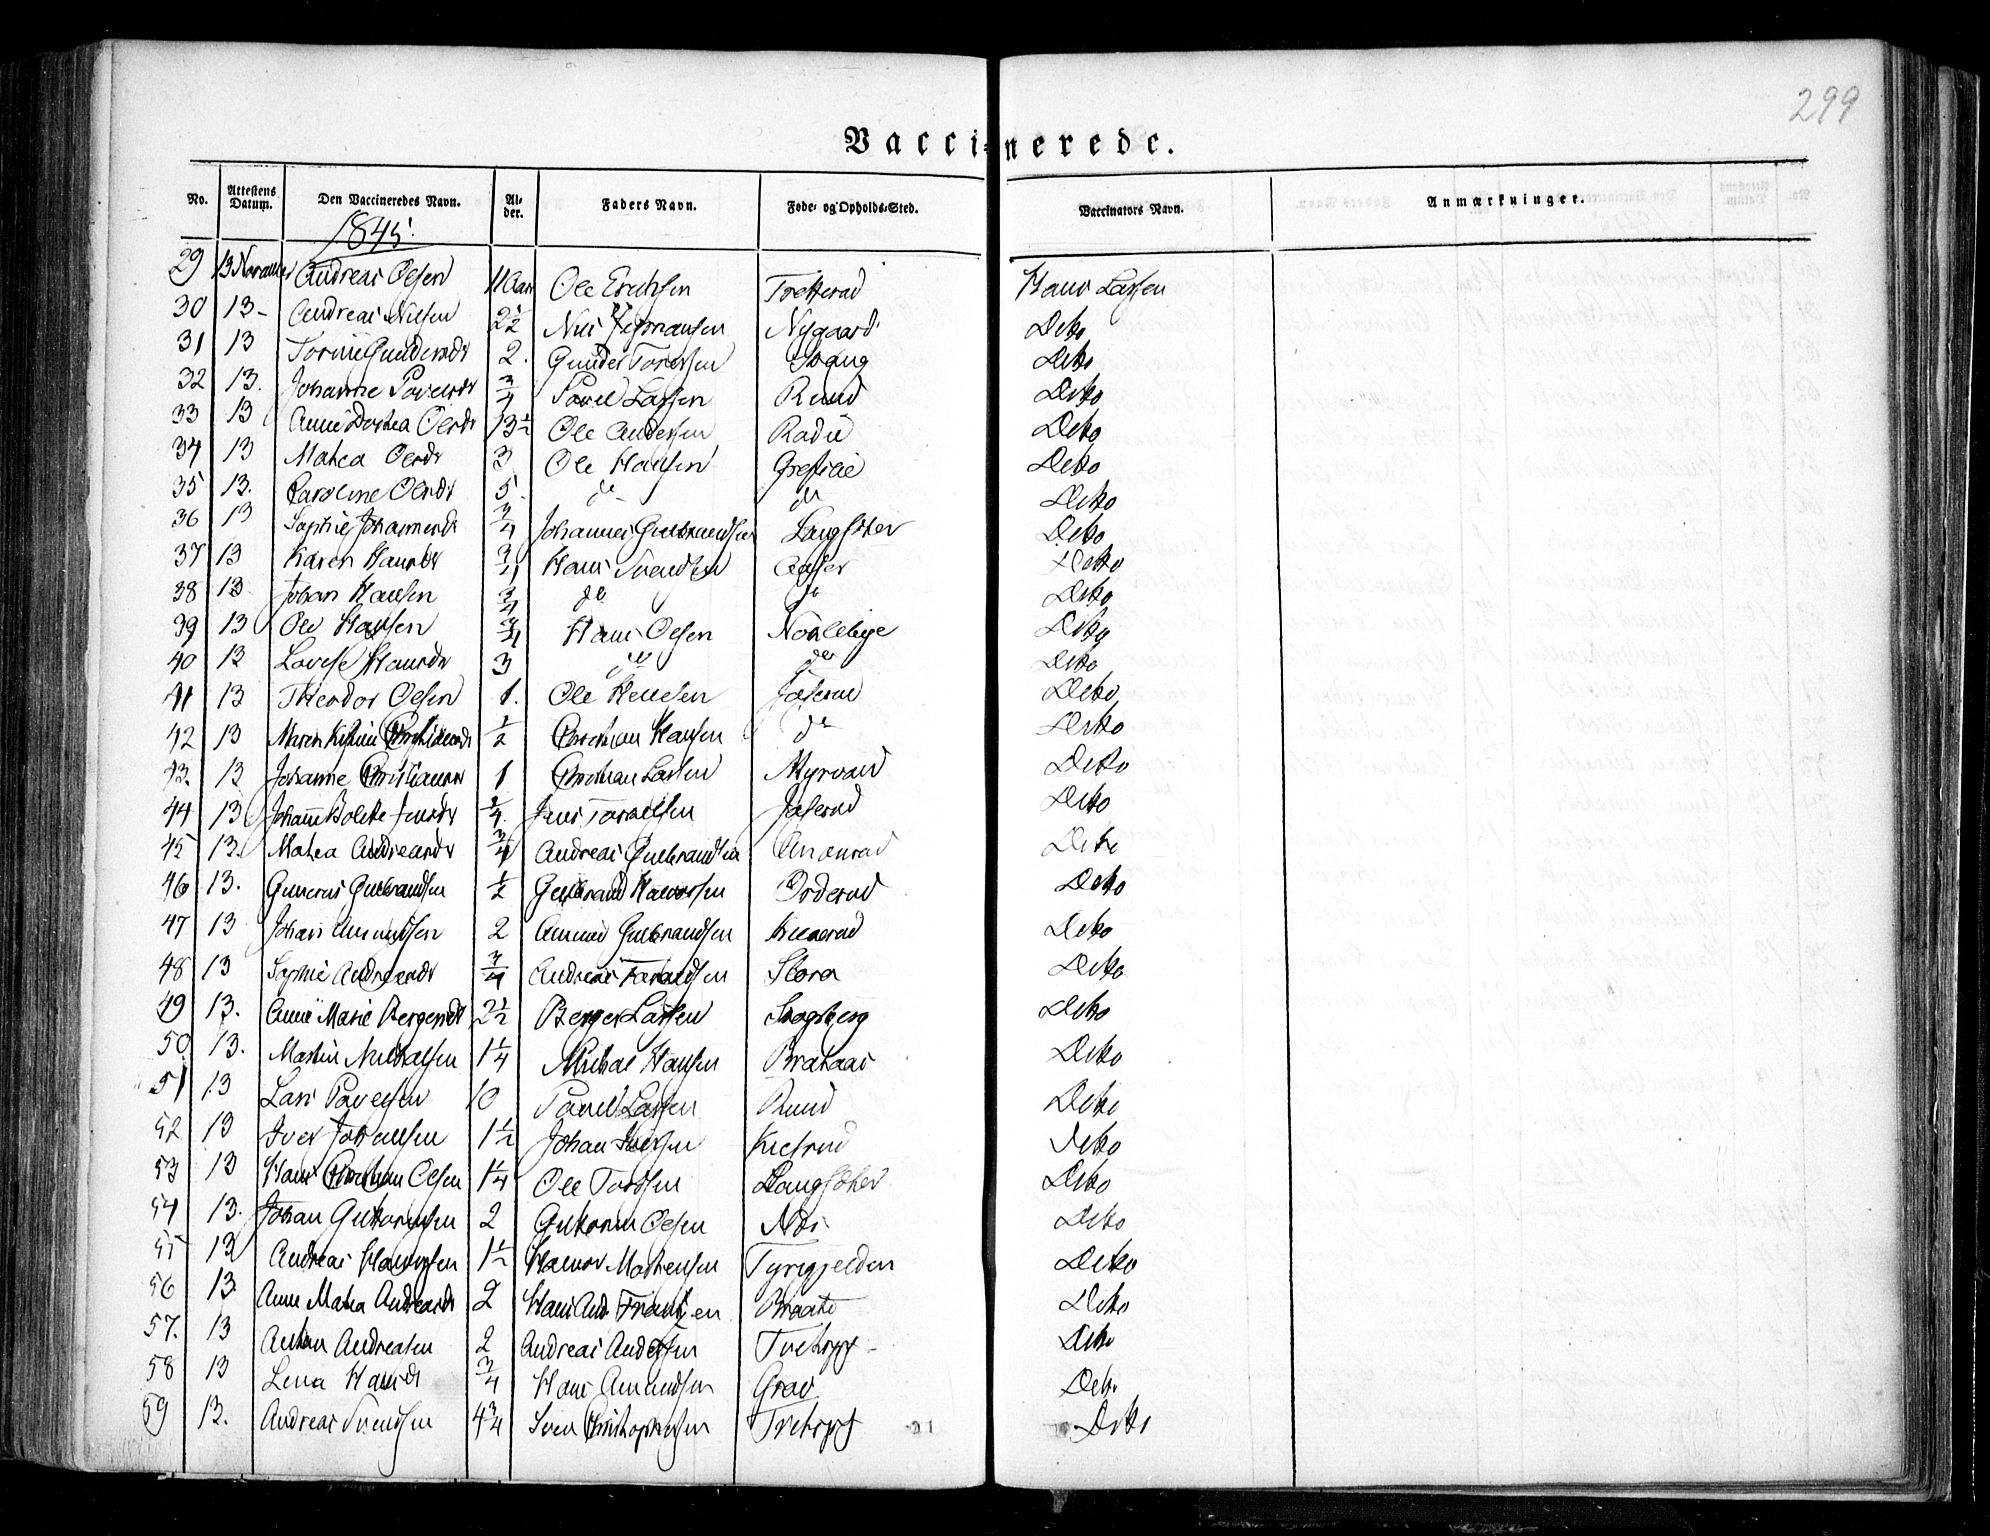 299
Vaccinerede.
No. Attestens Datum. Den Vaccineredes Navn. Alder. Faders Navn. Føde- og Opholds-Sted. Vaccinators Navn. Anmærkninger.
1845.
29 13 November Andreas Olsen 11 Aar Ole Erichsen Tretterud Hans Larsen
30 13 - Andreas Nilsen 2½ Nils Nygaard Deto
31 13 Gundersdr 2. Gunder Toresen Deto
32 13. Johanne Povelsdr ¾ Povel Larsen Ruud Deto
33 13 Anne Dorthea Olsdr 13½ Ole Andersen Deto
34 13 Mathea Olsdr 3 Ole Hansen Grefslie Deto
35 13. Caroline Olsdr 5. do do Deto
36 13 Sophie Johannesdr ¾ Johannes Gulbrandsen Langsæter Deto
37 13 Karen Hansdr ¾ Hans Svendsen Aaser Detto
38 13 Johan Hansen ¾ do do Deto
39 13 Ole Hansen ¾ Hans Olsen Nordlebye Deto
40 13 Lovise Hansdr 3 do do Deto
41 13 Theodor Olsen 1. Ole Jøserud Deto
42 13 Maren Christiansdr ½ Christian Hansen do Deto
43. 13 Johanne Christiansdr 1 Christian Larsen Myrvold Deto
44 13 Johanne Bolette Jensdr ¾ Jens Jøserud Deto
45 13. Mathea Andreasdr ¾ Andreas Gulbrandsen Deto
46 13. Gulbrandsen ½ Gulbrand Haworsen Orderud Deto
47 13 Johan Amundsen 2 Amund Gulbrandsen Deto
48 13 Sophie Andreasdr ¾ Andreas Slora Deto
49 13. Anne Marie Bergersdr 2½ Berger Larsen Skogsberg Deto
50 13. Martin Michalsen 1¼ Michal Hansen Deto
51 13 Lars Povelsen 10 Povel Larsen Ruud Deto
52 13 Iver Johansen 1½ Johan Iversen Kielsrud Deto
53 13 Hans Christian Olsen 1¼ Ole Tordsen Langsæther Deto
54 13. Johan Guttormsen 2 Guttorm Olsen Næs Deto
55 13 Andreas Haworsen 1½ Hawor Mathesen Tyrigjelden Deto
56 13. Anne Mathea Andreasdr 2 Hans And. Fransen Braate Deto
57. 13 Anthon Andreasen 2 Andreas Andersen Tvetropp Deto
58 13 Lena Hansdr ¾ Hans Amundsen Grav Deto
59 13. Andreas Svendsen 4¾ Sven Christophersen Tvetropp Deto